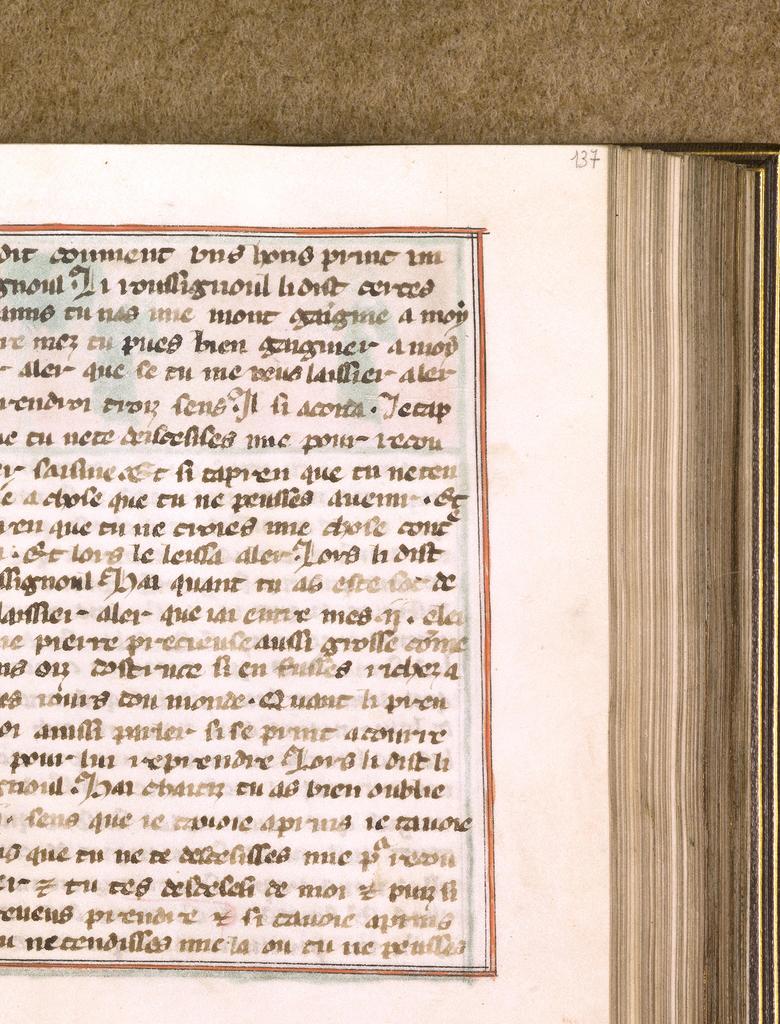 137
dit comment uns hons print un
gnoul. Li roussignoul li dist certes
amis tu nas mie mont gaignie a moy
re mez tu pues bien gaignier a moy
aler que se tu me veus laissier aler
rendroi troiz sens. Il si acorda. Je tap
ue tu ne te desdesisses mie pour recou
er saisine. Et si tapren que tu ne ten
e a chose que tu ne peusses avenir. Et
ren que tu ne croies mie chose cont
. Et lors le leissa aler. Lors li dist
ssignoul Hai quant tu as este de
laissier aler que iai entre mes .ij.
ne pierre precieuse aussi grosse come
ns oiz dostruce si en fusses richez a
es iours dou monde. Quant li pren
oi ainssi parler si se print a courre
pour lui reprendre. Lors li dist li
gnoul. Hai chaitiz tu as bien oublie
. sens que ie tavoie aprins ie tavoie
s que tu ne te desdesisses mie pr recou
er & tu tes desdesi de moi & puiz si
reveus prendre & si tavoie aprins
u ne tendisses mie la ou tu ne peusses